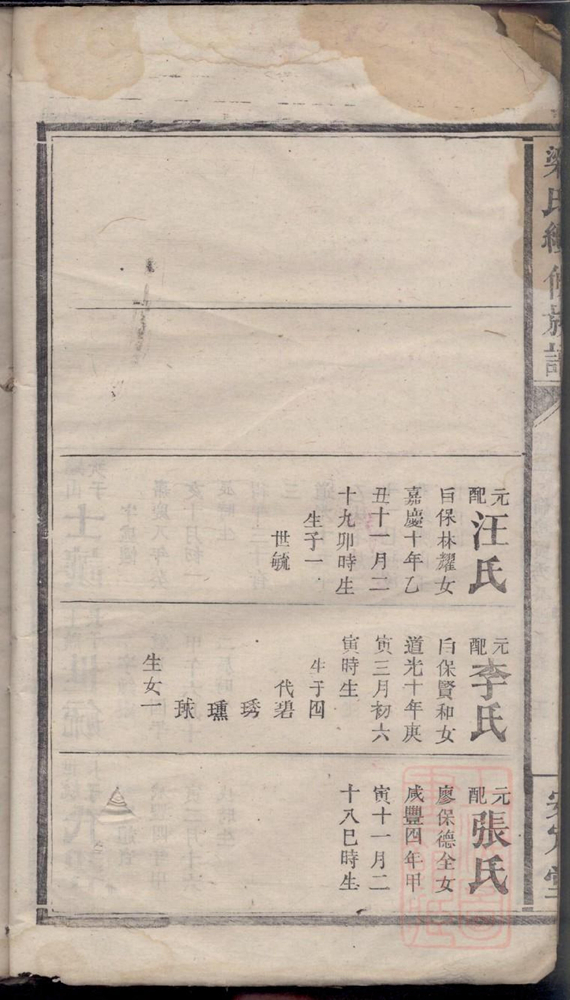 梁氏續修族譜
安定堂
元配汪氏
白保林耀女
嘉慶十年乙
丑十一月二
十九卯時生
生子一
世毓
元配李氏
白保賢和女
道光十年庚
寅三月初六
寅時生
生子四
代碧
琇
璴
球
生女一
元配張氏
廖保德全女
咸豐四年甲
寅十一月二
十八巳時生